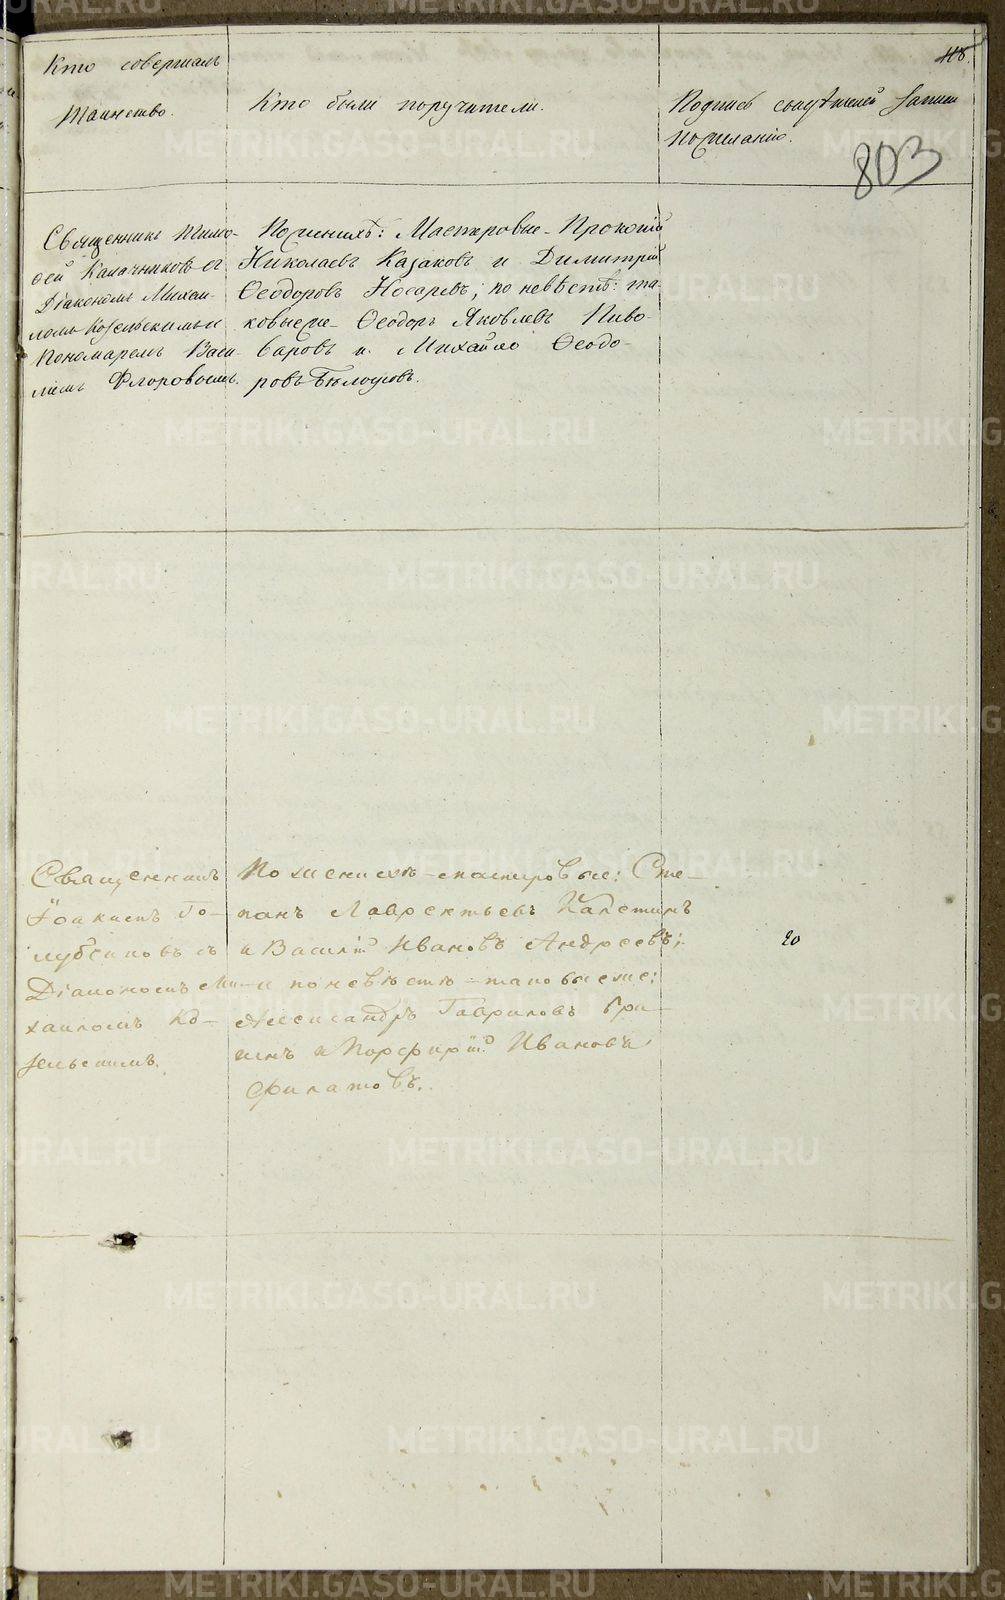 Кто совершалъ
Таинство.
Кто были поручители.
Подпись свидѣтелей записи
по желанію.
118.
803
Священникъ Тимо-
фей Калачниковъ съ
Діакономъ Михаи-
ломъ Козельскимъ и
Пономаремъ Васи-
ліемъ Флоровымъ.
По женихѣ: Мастеровые - Прокопій
Николаевъ Казаковъ и Димитрій
Ѳеодоровъ Носаревъ; по невѣстѣ: та-
ковые же - Ѳеодоръ Яковлевъ Пиво-
варовъ и Михайло Ѳеодо-
ровъ Бѣлоусовъ.
Священникъ
Іоакимъ Го-
лубчиковъ съ
Діакономъ Ми-
хаиломъ Ко-
зельскимъ.
По женихѣ - мастеровые: Сте-
панъ Лаврентьевъ
и Василій Ивановъ Андреевъ;
и по невѣстѣ - таковые же:
Александръ Гавриловъ
и Порфирій Ивановъ
Филатовъ.
20
METRIKI.GASO-URAL.RU